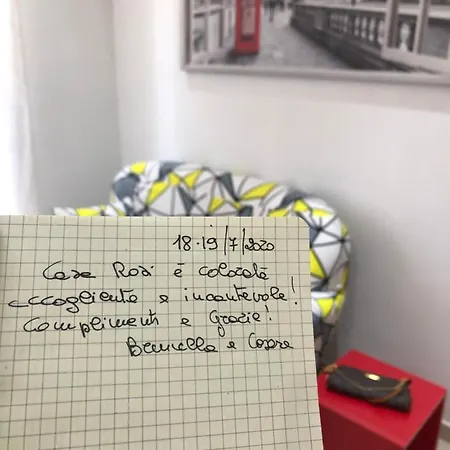 18-19/7/2020
Casa Rosi è colorata
accogliente e incantevole!
Complimenti e Grazie!
Brunella e Cesare